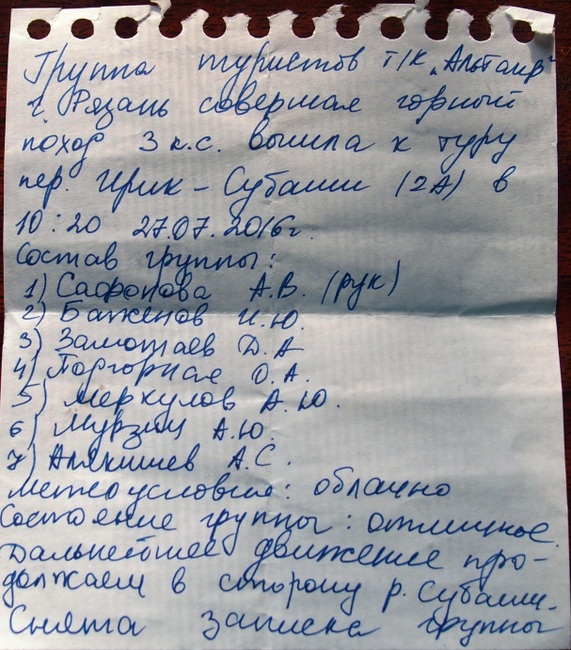 Группа туристов т/к „Альтаир"
г. Рязань совершая горный
поход 3 к.с. вышла к туру
пер. Ирик-Субаши (2А) в
10:20 27.07.2016г.
Состав группы:
1) Сафонова А.В. (рук)
2) Баженов И.Ю.
3) Замотаев Д.А
4) Подгорная О.А.
5) Меркулов А.Ю.
6) Мурзин А.Ю.
7) Алякишев А.С.
метеоусловия: облачно
Состояние группы: отличное.
Дальнейшее движение про-
должаем в сторону р. Субаши.
Снята записка группы